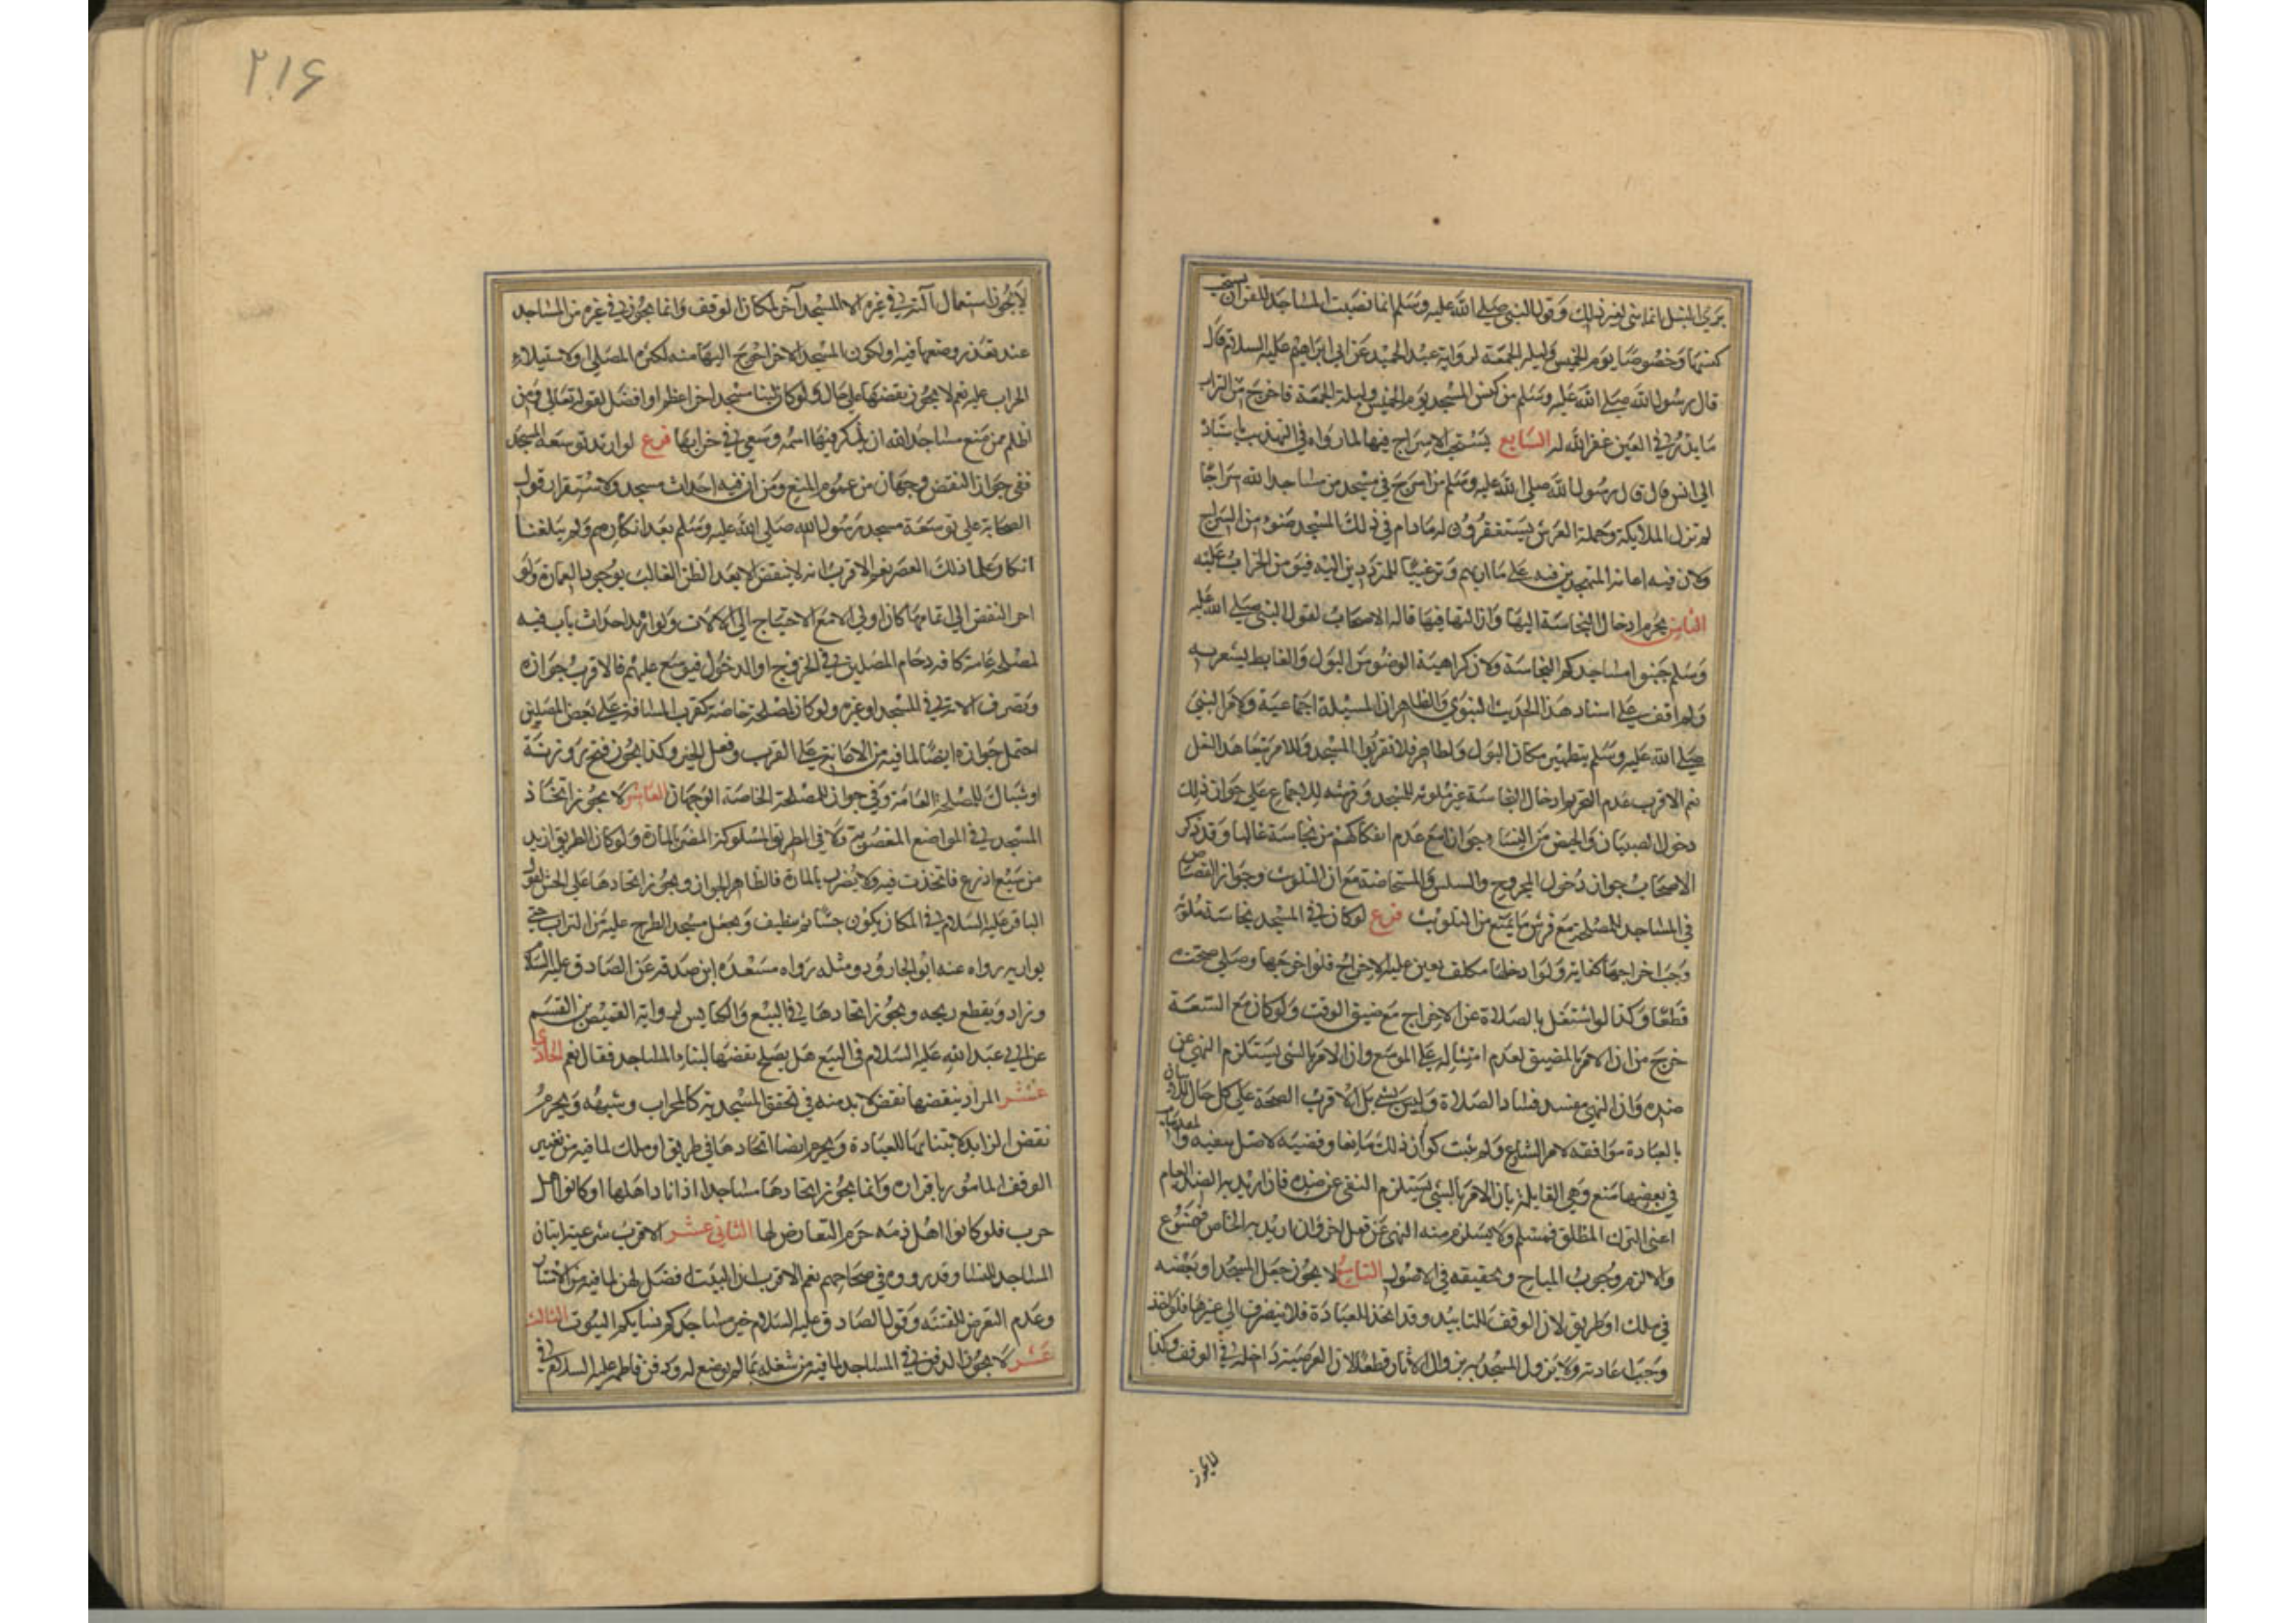 بري النبل انما شي لغير ذلك وقول النبي صلى الله عليه وسلم انما نصبت المساجد للقران يستحب
كنسها وخصوصا يوم الخميس وليلة الجمعة لرواية عبد الحميد عن ابي ابراهيم عليه السلام قال
قال رسول الله صلى الله عليه وسلم من كنس المسجد يوم الخميس وليلة الجمعة فاخرج من التراب
ما يذر في العين غفر الله له السابع يستحب الاسراج فيها لما رواه في التهذيب باسناد
الى انس قال قال رسول الله صلى الله عليه وسلم من اسرج في مسجد من مساجد الله سراجا
لم تزل الملايكة وحملة العرش يستغفرون له ما دام في ذلك المسجد ضوء من السراج
ولان فيه اعانة المتهجدين فيه على مآربهم وترغيبا للمترددين اليه فيؤمن الخراب عليه
الثامن يحرم ادخال النجاسة اليها وازالتها فيها قاله الاصحاب لقول النبي صلى الله عليه
وسلم جنبوا مساجدكم النجاسة ولان كراهية الوضوء من البول والغايط يشعر به
ولم اقف على اسناد هذا الحديث النبوي والظاهر ان المسيلة اجماعية ولامر النبي
صلى الله عليه وسلم بتطهير مكان البول ولظاهر فلا تقربوا المسجد وللامر بتعاهد النعل
نعم الاقرب عدم التحريم ادخال النجاسة غير ملوثه للمسجد وفرشه للاجماع على جواز ذلك
دخول الصبيان والحيض من النساء وجوازا مع عدم انفكاكهم من نجاسة غالبا وقد ذكر
الاصحاب جواز دخول المجروح والسلس والمستحاضة مع امن التلويث وجواز القصاص
في المساجد للمصلحة مع فرش ما يمنع من التلويث فرع لو كان في المسجد نجاسة ملوثة
وجب اخراجها كفاية ولو ادخلها مكلف تعين عليه الاخراج فلو اخرجها وصلى صحت
قطعا وكذا لو اشتغل بالصلاة عن الاخراج مع ضيق الوقت ولو كان مع السعة
خرج من ان الامر بالمضيق لعدم امتثاله على الموسع وان الامر بالشي يستلزم النهي عن
ضده وان النهي مفسد فساد الصلاة وليس بشي بل الاقرب الصحة على كل حال للاتيان
بالعبادة موافقة لامر الشارع ولم يثبت كون ذلك مانعا وقضية الاصل ينفيه والمقدمات
في بعضها منع وهي القايلة بان الامر بالشي يستلزم النهي عن ضده فان اريد به الضد العام
اعني الترك المطلق فمسلم ولا يستلزم منه النهي عن فعل اخر وان اريد به الخاص فممنوع
والا لزم وجوب المباح وتحقيقه في الاصول التاسع لا يجوز جعل المسجد او بعضه
في ملك او طريق لان الوقف للتابيد وقد اتخذ للعبادة فلا ينصرف الى غيرها فلو اخذ
وجب اعادته ولا يزول المسجدية بزوال الاثار قطعا لان العرصة داخلة في الوقف وكذا
لايجوز
۲۱۶
لا يجوز استعمال آلته في غيره الا لمسجد آخر لمكان الوقف وانما يجوز في غيره من المساجد
عند تعذر وضعها فيه او لكون المسجد الاخر احوج اليها منه لكثرة المصلي او لاستيلاء
الخراب عليه نعم لا يجوز نقضها على حال ولو كان لبنا مسجد اخر اعظم او افضل لقوله تعالى ومن
اظلم ممن منع مساجد الله ان يذكر فيها اسمه وسعى في خرابها فرع لو اريد توسعة المسجد
ففي جواز النقض وجهان من عموم المنع ومن ان فيه احداث مسجد ولاستقرار قول
الصحابة على توسعة مسجد رسول الله صلى الله عليه وسلم بعد انكارهم ولم يبلغنا
انكار علماء ذلك العصر نعم الاقرب انه لا ينقض الا بعد الظن الغالب بوجود العمارة ولو
اخر النقض الى اتمامها كان اولى الا مع الاحتياج الى الالات ولو اريد احداث باب فيه
لمصلحة عامة كازدحام المصلين في الخروج او الدخول فيوسع عليهم فالاقرب جوازه
وتصرف الاته في المسجد او غيره ولو كان لمصلحة خاصة كقرب المسافة على بعض المصلين
احتمل جوازه ايضا لما فيه من الاعانة على القرب وفعل الخير وكذا يجوز فتح روزنة
او شباك للمصلحة العامة وفي جوازه للمصلحة الخاصة الوجهان العاشر لا يجوز اتخاذ
المسجد في المواضع المغصوبة ولا في الطريق المسلوكة المضر بالمارة ولو كان الطريق ازيد
من سبع اذرع فاتخذت فيه ولا يضرب بالمارة فالظاهر الجواز ويجوز اتخاذها على الحش لقول
الباقر عليه السلام في المكان يكون حشا ثم ينظف ويجعل مسجد الطرح عليه من التراب حتى
يواريه رواه عنه ابو الجارود ومثله رواه مسعدة ابن صدقة عن الصادق عليه السلام
وزاد ويقطع ريحه ويجوز اتخاذها في البيع والكنايس لرواية العيص بن القسم
عن ابي عبد الله عليه السلام في البيع هل يصلح نقضها لبناء المساجد فقال نعم الحادي
عشر المراد بنقضها نقض لا بد منه في تحقق المسجدية كالمحراب وشبهه ويحرم
نقض الزايد لابتنائها للعبادة ويحرم ايضا اتخادها في طريق او ملك لما فيه من تغيير
الوقف المامور باقراره وانما يجوز اتخادها مساجد اذا باد اهلها او كانوا اهل
حرب فلو كانوا اهل ذمه حرم التعارض لها الثاني عشر الاقرب شرعية اتيان
المساجد للنساء وقد رووه في صحاحهم نعم الاقرب ان البيت افضل لهن لما فيه من الاستتار
وعدم التعرض للفتنه وقول الصادق عليه السلام خير مساجدكم نسايكم البيوت الثالث
عشر لا يجوز الدفن في المساجد لما فيه من شغله بما لم يوضع له ودفن فاطمة عليها السلام في